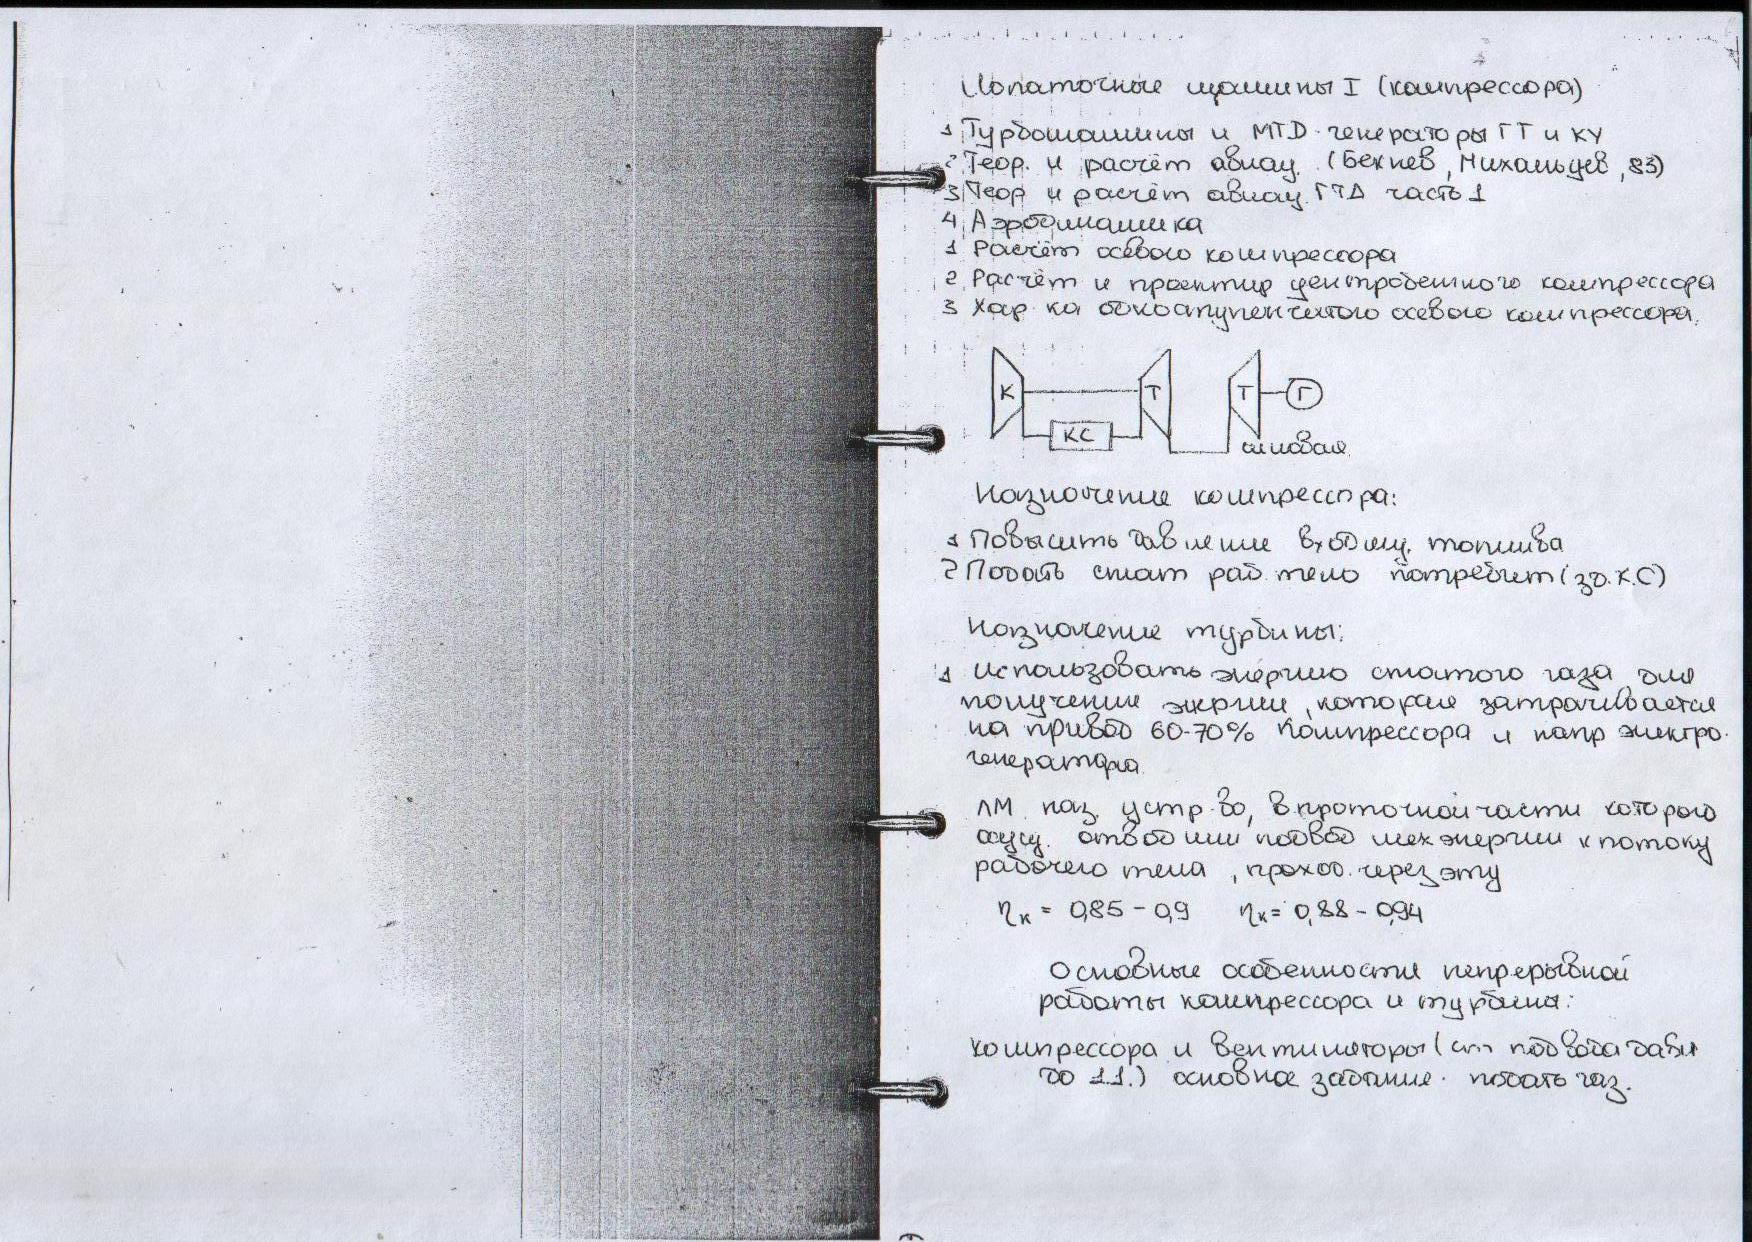 Лопаточные машины I (компрессора)
1 Турбомашины и МГД-генераторы ГТ и КУ
2 Теор. и расчёт авиац. (Бекнев, Михальцев, 83)
3 Теор и расчёт авиац. ГТД часть 1
4 Аэродинамика
1 Расчёт осевого компрессора
2 Расчёт и проектир центробежного компрессора
3 Хар-ка одноступенчатого осевого компрессора.
К Т Т Г
КС
силовая
Назначение компрессора:
1 Повысить давление входящ. топлива
2 Подать сжат раб. тело потребит (зд. К.С)
Назначение турбины:
1 Использовать энергию сжатого газа для
получение энергии, которая затрачивается
на привод 60-70% компрессора и напр электро-
генератора
ЛМ наз устр-во, в проточной части которого
осущ. отвод или подвод мех энергии к потоку
рабочего тела, проход. через эту
ηк = 0,85 - 0,9 ηк = 0,88 - 0,94
Основные особенности непрерывной
работы компрессора и турбины:
компрессора и вентиляторы (ст подвода давл
до 1.1.) основное задание - подать газ.